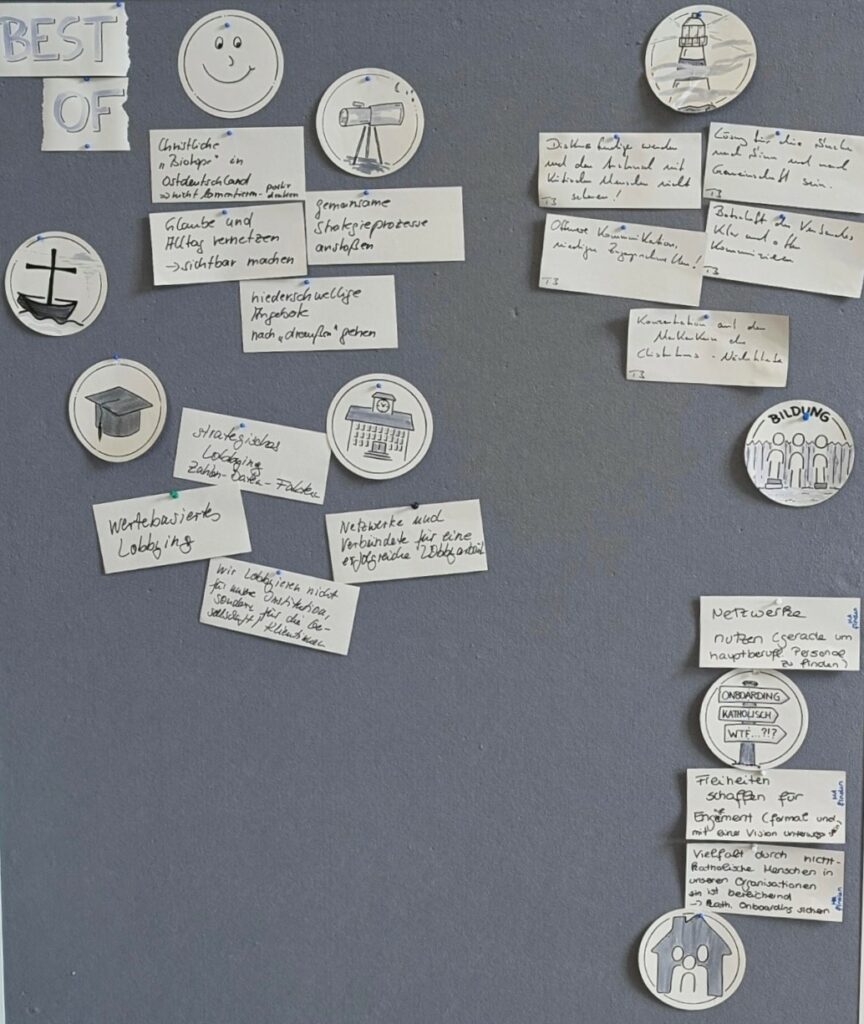 BEST
OF
Christliche
„Biotope" in
Ostdeutschland
nicht lamentieren - positiv
denken
Glaube und
Alltag vernetzen
→ sichtbar machen
gemeinsame
Strategieprozesse
anstoßen
niederschwellige
Angebote
nach „draußen" gehen
strategisches
Lobbying
Zahlen-Daten-Fakten
Wertebasiertes
Lobbying
Netzwerke und
Verbündete für eine
erfolgreiche Lobbyarbeit
Wir Lobbyieren nicht
für unsere Institution,
sondern für die Ge-
sellschaft / Klient:innen
Diskursfreudige werden
und den Austausch mit
kritischen Menschen nicht
scheuen!
T3
Lösung für die Suche
nach Sinn und nach
Gemeinschaft sein.
T3
Offensive Kommunikation,
niedrige Zugangsschwellen!
T3
Botschaft des Verbandes
klar und offen
kommunizieren
T3
Konzentration auf den
Markenkern des
Christentums - Nächstliebe
T3
BILDUNG
Netzwerke
nutzen (gerade um
hauptberufl. Personal
zu finden)
ONBOARDING
KATHOLISCH
WTF...?!?
Freiheiten
schaffen für
Engament (formal und
mit einer Vision unterwegs
Vielfalt durch nicht-
katholische Menschen in
unseren Organisationen
ist bereichernd
→ kath. Onboarding sichern